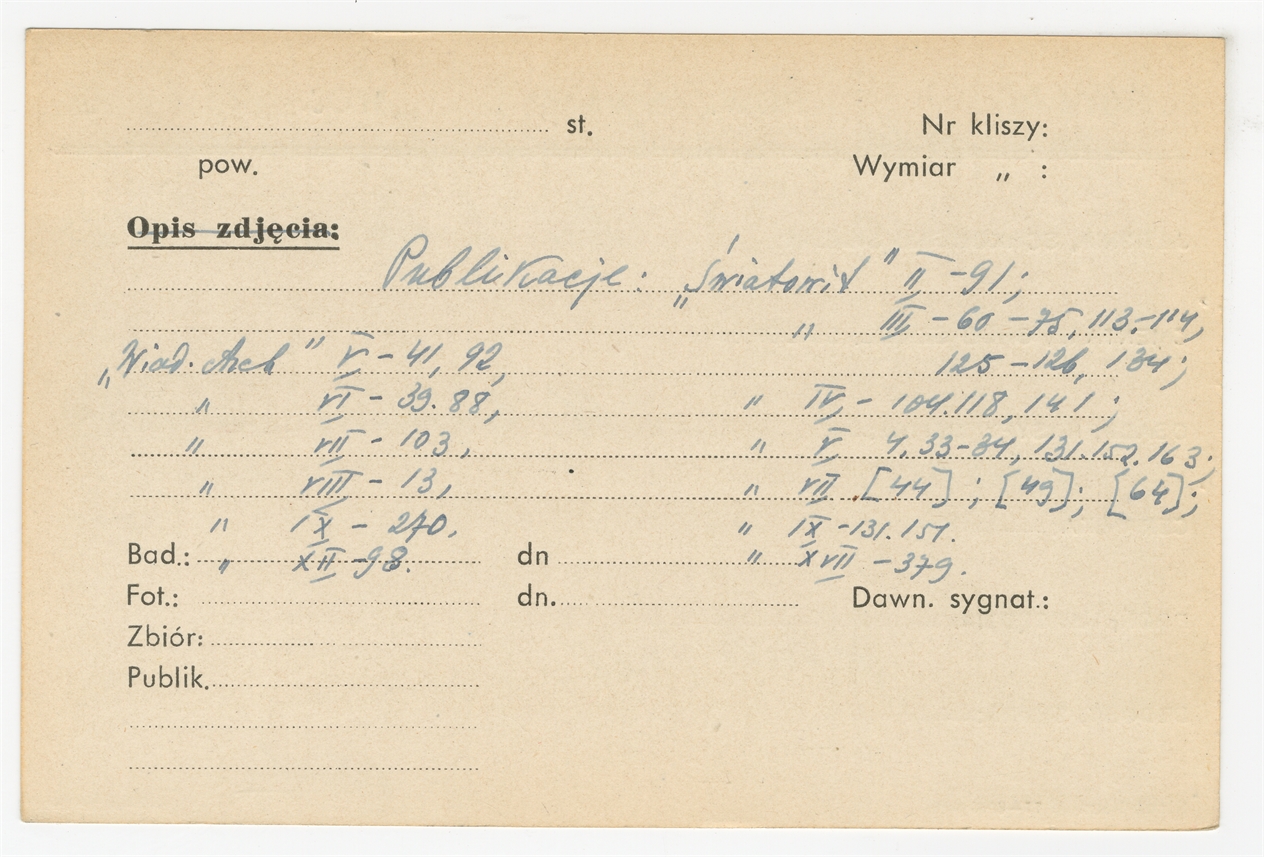 st. Nr kliszy:
pow. Wymiar „ :
Opis zdjęcia:
Publikacje: „Światowit" II - 91;
" III - 60 - 75, 113-114,
„Wiad. Arch" V - 41, 92, 125 - 126, 134;
" VI - 39. 88, " IV - 104. 118, 141;
" VII - 103, " V 4. 33-34, 131. 152. 163;
" VIII - 13, " VII [44]; [49]; [64];
" IX - 270. " IX - 131. 151.
Bad.: " XII - 98. dn " XVII - 379.
Fot.: dn. Dawn. sygnat.:
Zbiór:
Publik.